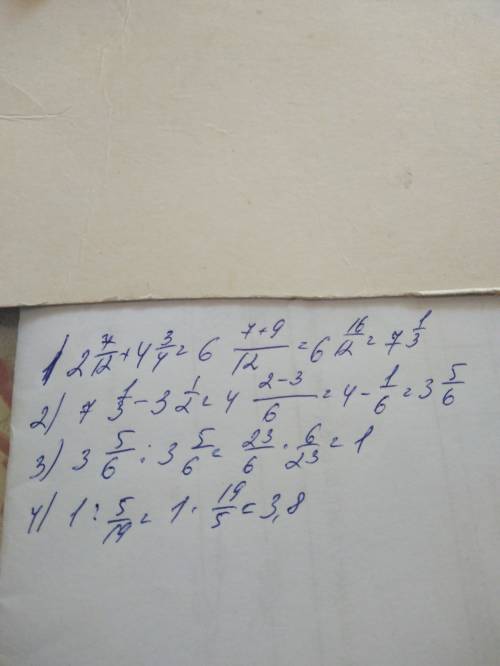 1) 2 7/12 + 4 3/4 = 6 (7+9)/12 = 6 16/12 = 7 1/3
2) 7 1/3 - 3 1/2 = 4 (2-3)/6 = 4 - 1/6 = 3 5/6
3) 3 5/6 : 3 5/6 = 23/6 · 6/23 = 1
4) 1 : 5/19 = 1 · 19/5 = 3,8